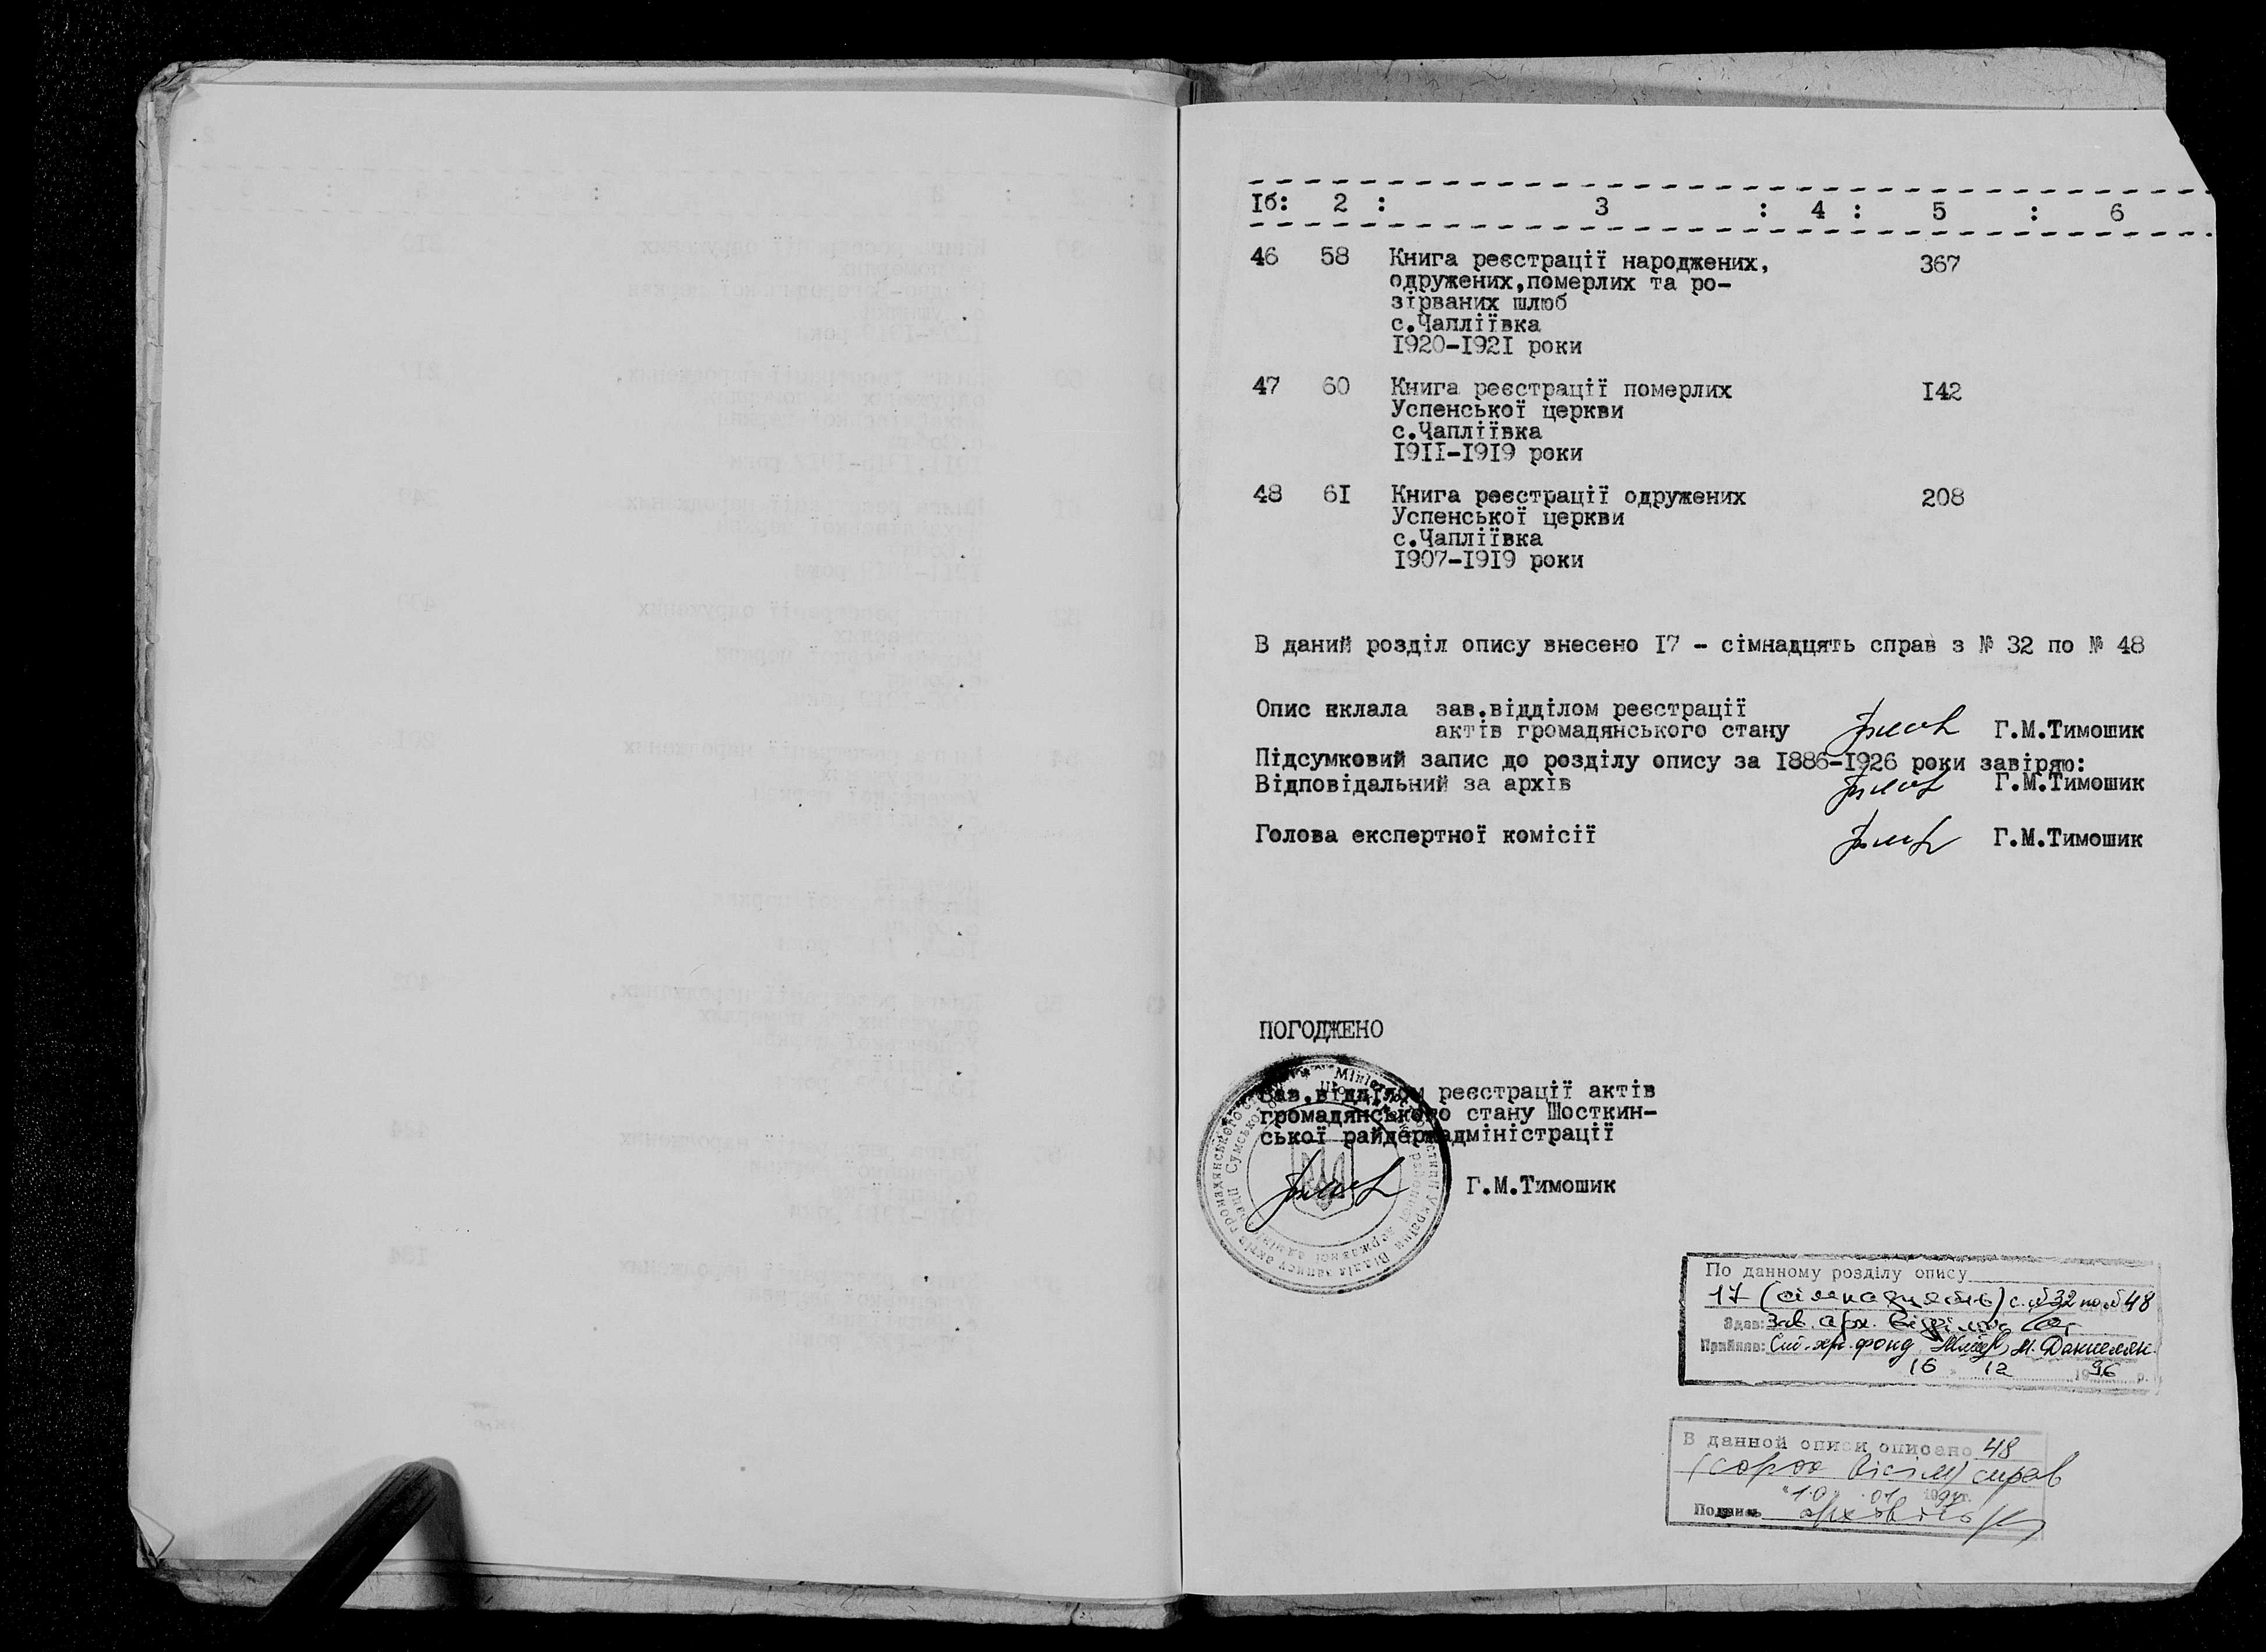 Iб: 2 : 3 : 4 : 5 : 6
46 58 Книга реєстрації народжених, 367
одружених,померлих та ро-
зірваних шлюб
с.Чапліївка
I920-I92I роки
47 60 Книга реєстрації померлих I42
Успенської церкви
с.Чапліївка
I9II-I9I9 роки
48 6I Книга реєстрації одружених 208
Успенської церкви
с.Чапліївка
I907-I9I9 роки
В даний розділ опису внесено I7 - сімнадцять справ з № 32 по № 48
Опис склала зав.відділом реєстрації
актів громадянського стану Г.М.Тимошик
Підсумковий запис до розділу опису за I886-I926 роки завіряю:
Відповідальний за архів Г.М.Тимошик
Голова експертної комісії Г.М.Тимошик
ПОГОДЖЕНО
Зав.відділом реєстрації актів
громадянського стану Шосткин-
ської райдержадміністрації
Г.М.Тимошик
По данному розділу опису
17 (сімнадцять) с. № 32 по № 48
Здав: Зав. арх. відділом
Прийняв: фонд М. Даниелян
16 12 1996 р.
В данной описи описано 48
(сорок вісім) справ
"10" 01 199 г.
Подпись